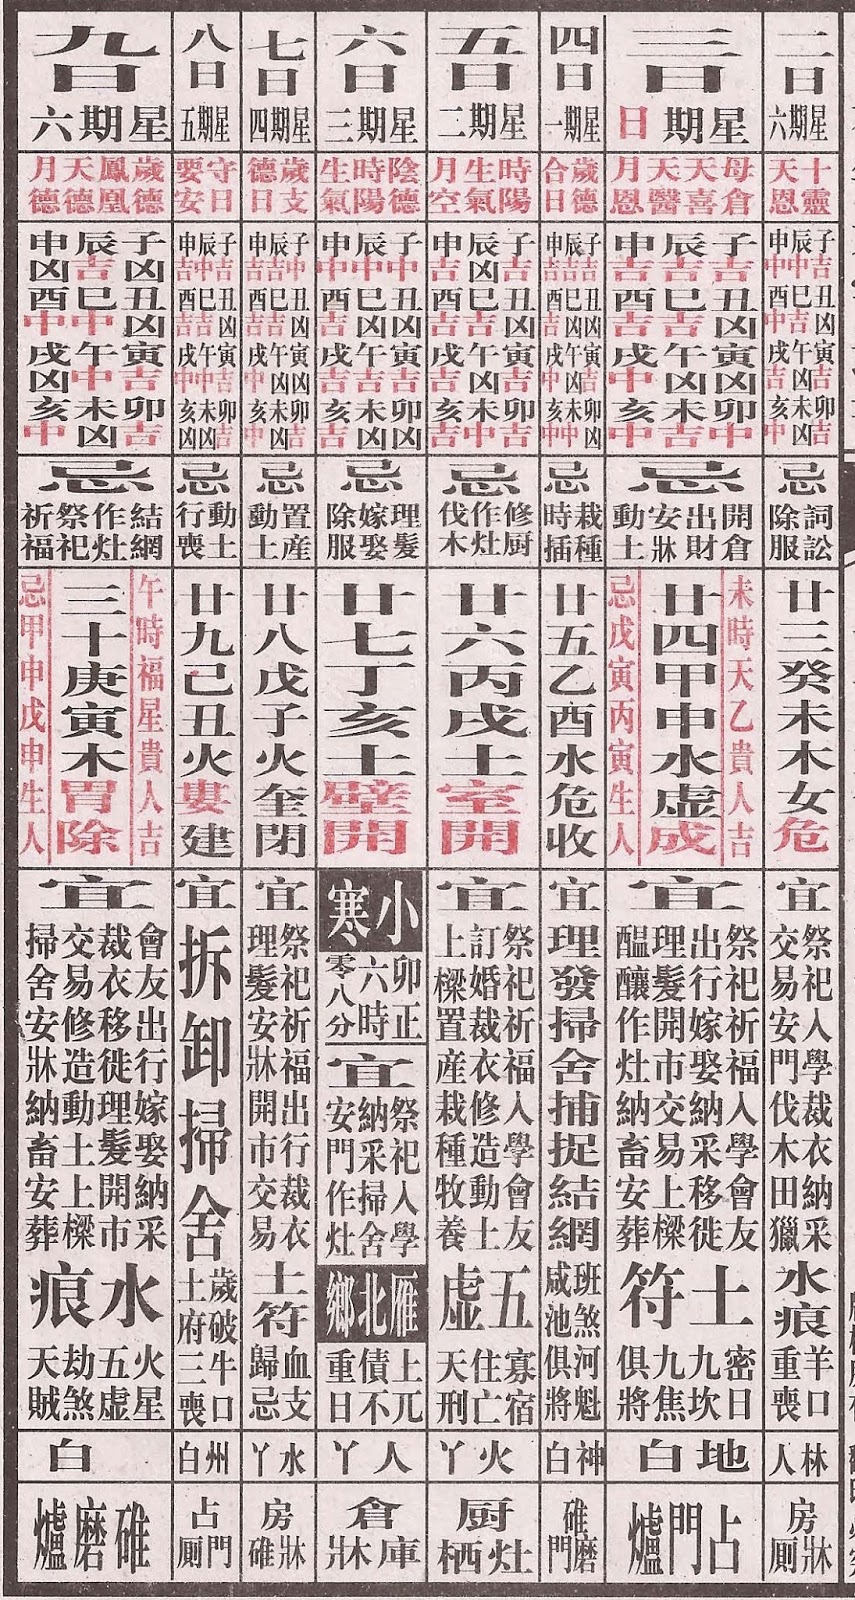 二日
星期六
十靈
天恩
子吉 辰中 申中
丑凶 巳吉 酉中
寅吉 午凶 戌吉
卯吉 未凶 亥中
忌
詞訟
除服
廿三癸未木女危
宜
祭祀入學裁衣納采
交易安門伐木田獵
水痕
羊口
重喪
林人
房牀
厠
三日
星期日
母倉
天喜
天醫
月恩
子吉 辰吉 申吉
丑凶 巳吉 酉吉
寅凶 午凶 戌中
卯中 未吉 亥中
忌
開倉
出財
安牀
動土
未時天乙貴人吉
廿四甲申水虛成
忌戊寅丙寅生人
宜
祭祀祈福入學會友
出行嫁娶納采移徙
理髮開市交易上樑
醞釀作灶納畜安葬
土符
密日
九坎
九焦
俱將
地白
占門爐
四日
星期一
歲德
合日
忌
栽種
時插
廿五乙酉水危收
宜
理發掃舍捕捉結網
班煞
咸池
河魁
俱將
神白
碓磨
門
五日
星期二
時陽
生氣
月空
子吉 辰凶 申吉
丑凶 巳吉 酉吉
寅吉 午凶 戌吉
卯吉 未中 亥吉
忌
修厨
作灶
伐木
廿六丙戌土室開
宜
祭祀祈福入學會友
訂婚裁衣修造動土
上樑置産栽種牧養
五虛
寡宿
住亡
天刑
火丫
厨灶栖
六日
星期三
陰德
時陽
生氣
子中 辰中 申中
丑凶 巳凶 酉吉
寅吉 午吉 戌吉
卯凶 未凶 亥吉
忌
理髮
嫁娶
除服
廿七丁亥土壁開
小寒
卯正
六時
零八分
宜
祭祀入學
納采掃舍
安門作灶
雁北鄉
上兀
債不
重日
人丫
倉庫牀
七日
星期四
歲支
德日
子中 辰吉 申吉
丑凶 巳吉 酉吉
寅凶 午凶 戌中
卯吉 未凶 亥中
忌
置産
動土
廿八戊子火奎閉
宜
祭祀祈福出行裁衣
理髮安牀開市交易
土符
血支
歸忌
水丫
房牀
碓
八日
星期五
守日
要安
子吉 辰中 申吉
丑凶 巳吉 酉吉
寅吉 午中 戌中
卯吉 未凶 亥凶
忌
動土
行喪
廿九己丑火婁建
宜
拆卸掃舍
歲破牛口
土府三喪
州白
占門
厠
九日
星期六
歲德
鳳凰
天德
月德
子凶 辰吉 申凶
丑凶 巳中 酉中
寅吉 午中 戌凶
卯吉 未凶 亥中
忌
結網
作灶
祭祀
祈福
午時福星貴人吉
三十庚寅木胃除
忌甲申戊申生人
宜
會友出行嫁娶納采
裁衣移徙理髮開市
交易修造動土上樑
掃舍安牀納畜安葬
水痕
火星
五虛
劫煞
天賊
白
碓磨爐